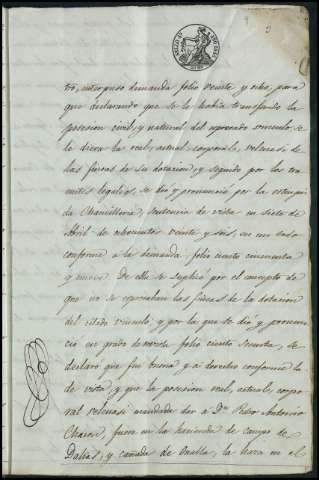 tó, interpuso demanda folio veinte y ocho, para
que declarando que se le habia transferido la
posesion civil, y natural del espresado vinculo, se
le diera la real, actual, corporal, velcuasi de
las fincas de su dotacion, y seguido por los tra-
mites legales, se dió y pronunció por la estingui
da Chancilleria, sentencia de vista en siete de
Abril de ochocientos veinte y seis, en un todo
conforme á la demanda, folio ciento cincuenta
y nueve. De ella se suplicó por el concepto de
que no se espresaban las fincas de la dotacion
del citado vinculo, y por la que se dió y pronun
ció en grado de revista folio ciento sesenta, se
declaró que fué buena y a derecho conforme la
de vista, y que la posesion real, actual, corpo
ral velcuasi mandada dar a Dn. Pedro Antonio
Chacon, fuese en la hacienda de campo de
Dalias, y cañada de Onalla, la haza en el